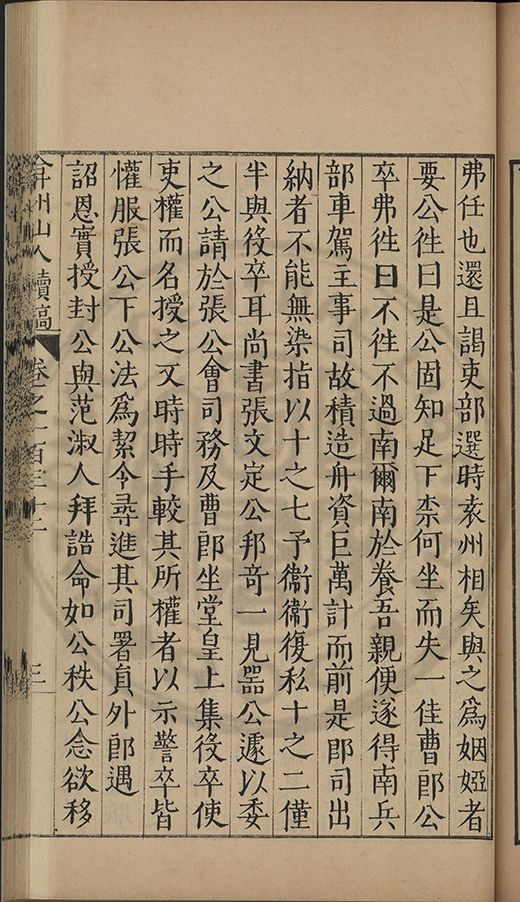 弗任也還且謁吏部選時袁州相矣與之爲姻婭者
要公徃曰是公固知足下柰何坐而失一佳曹郎公
卒弗徃曰不徃不過南爾南於養吾親便遂得南兵
部車駕主事司故積造舟資巨萬計而前是郎司出
納者不能無染指以十之七予衞衞復私十之二僅
半與役卒耳尚書張文定公邦竒一見器公遽以委
之公請於張公會司務及曹郎坐堂皇上集役卒使
吏權而名授之又時時手較其所權者以示警卒皆
懽服張公下公法爲絜令尋進其司署員外郎遇
詔恩實授封公與范淑人拜誥命如公秩公念欲移
弇州山人續稿 卷之一百三十二 三